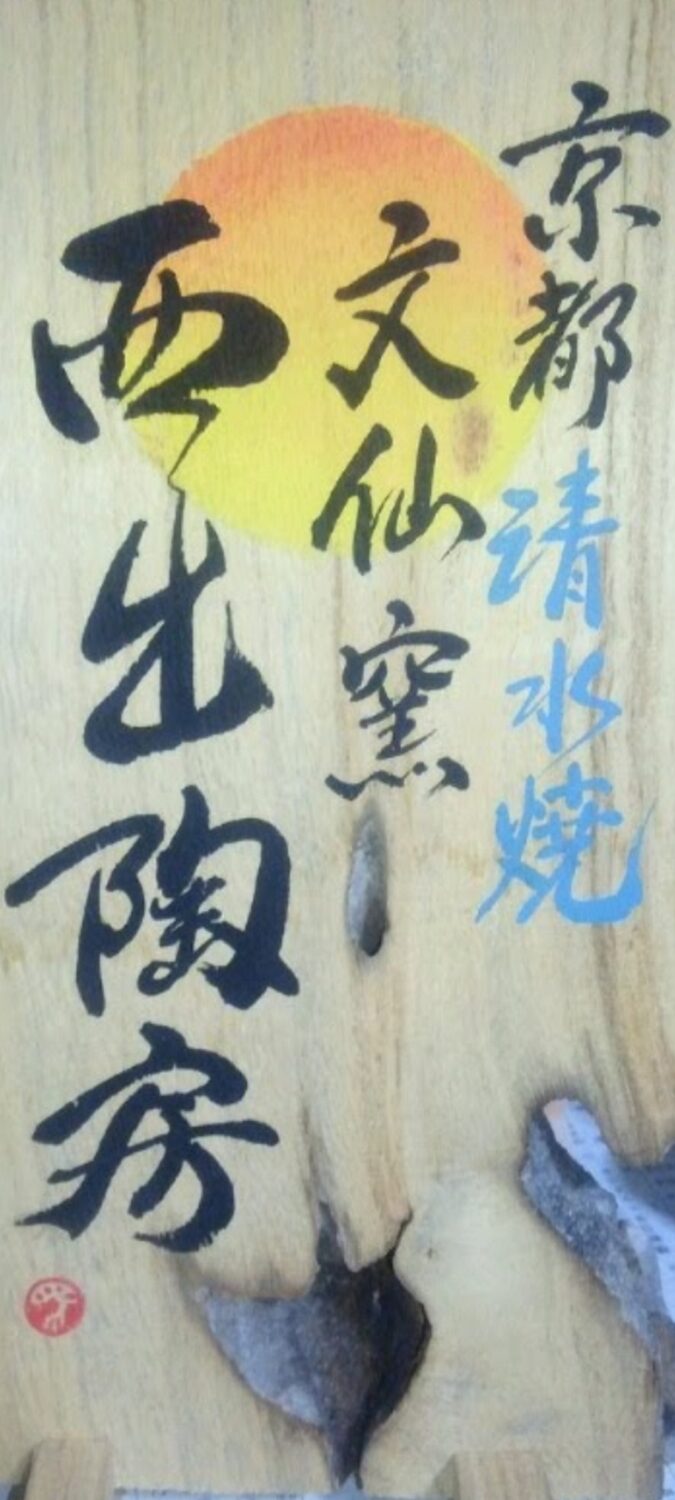 京都清水焼
文仙窯
西出陶房